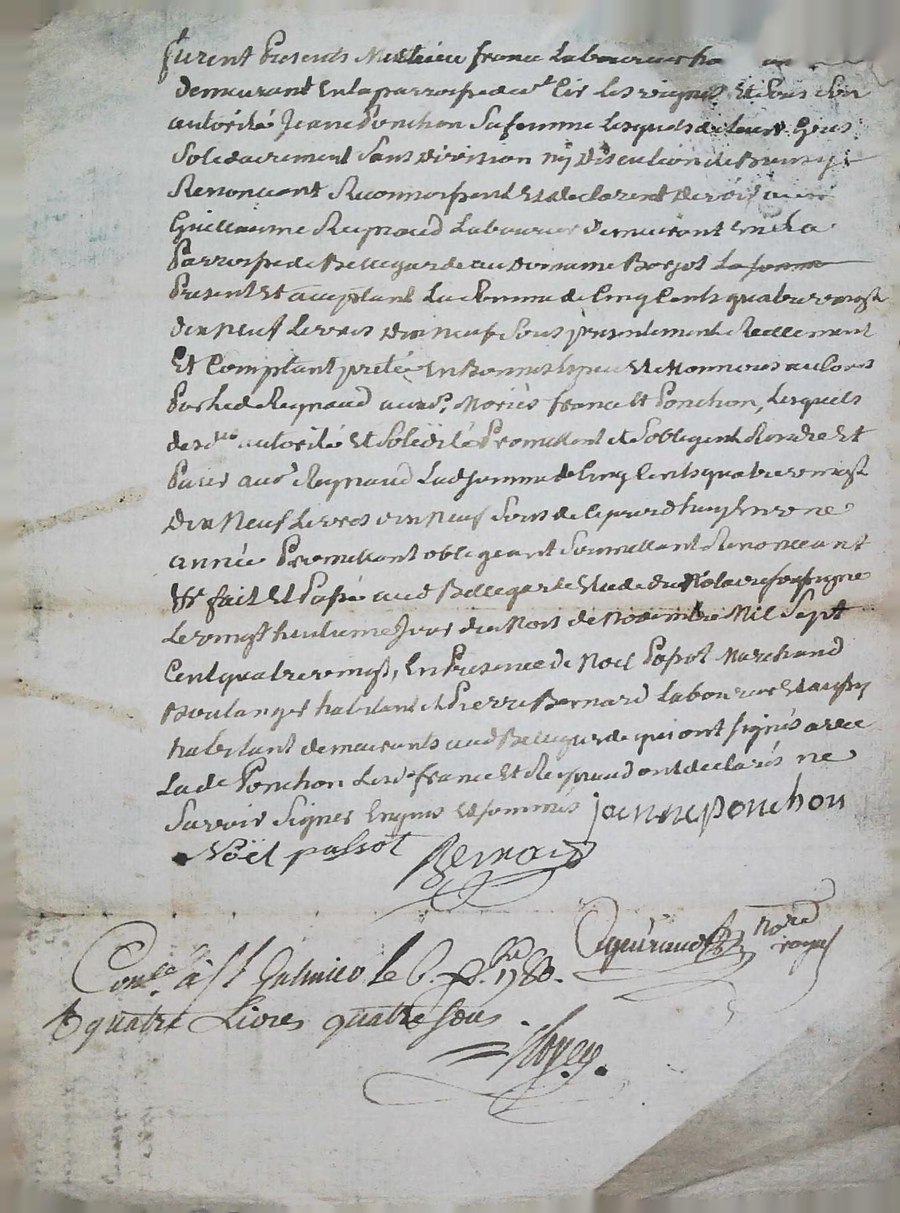 furent Presents Mathieu france Laboureur
demeurant En la parroisse de st Cir les vignes Et sous son
autorité Jeanne Ponchon sa femme Lesquels de leurs Grés
Solidairement Sans division ny discution de Biens y
Renonceant Reconnoissent Et declarent devoir a
Guillaume Reynaud Laboureur demeurant En la
Parroisse de Bellegarde au domaine Borjot
Present Et acceptant La Somme de Cinq Cents quatrevingt
dix Neuf Livres dix neuf Sous presentement Reellement
Et Comptant preté En Bonnes Especes Et Monnoies au Cours
Par led Reynaud auxds. Mariés france Et Ponchon, Lesquels
de sd autorité Et Solidité Promettent et s'obligent Rendre Et
Paier aud Reynaud Lad Somme de Cinq Cents quatrevingt
dix Neuf Livres dix neuf Sous de ce jourd'huy En une
année Promettant obligeant Soumettant Renonceant
Et fait Et Passé aud Bellegarde Etude du Notaire soussigné
Le vingt huitieme Jour du Mois de Novembre Mil Sept
Cent quatrevingt, En Presence de Noël Passot Marchand
Boulanger habitant et Pierre Bernard Laboureur Et aussy
habitant demeurants aud Bellegarde qui ont signés avec
Lade Ponchon Lesd france Et Reynaud ont declarés ne
Savoir Signer Enquis Et sommés jeanne ponchon
Noël passot Bernard
nore
royal
Conlé à St Galmier le 6. Xbre 1780.
R quatre Livres quatre sous.